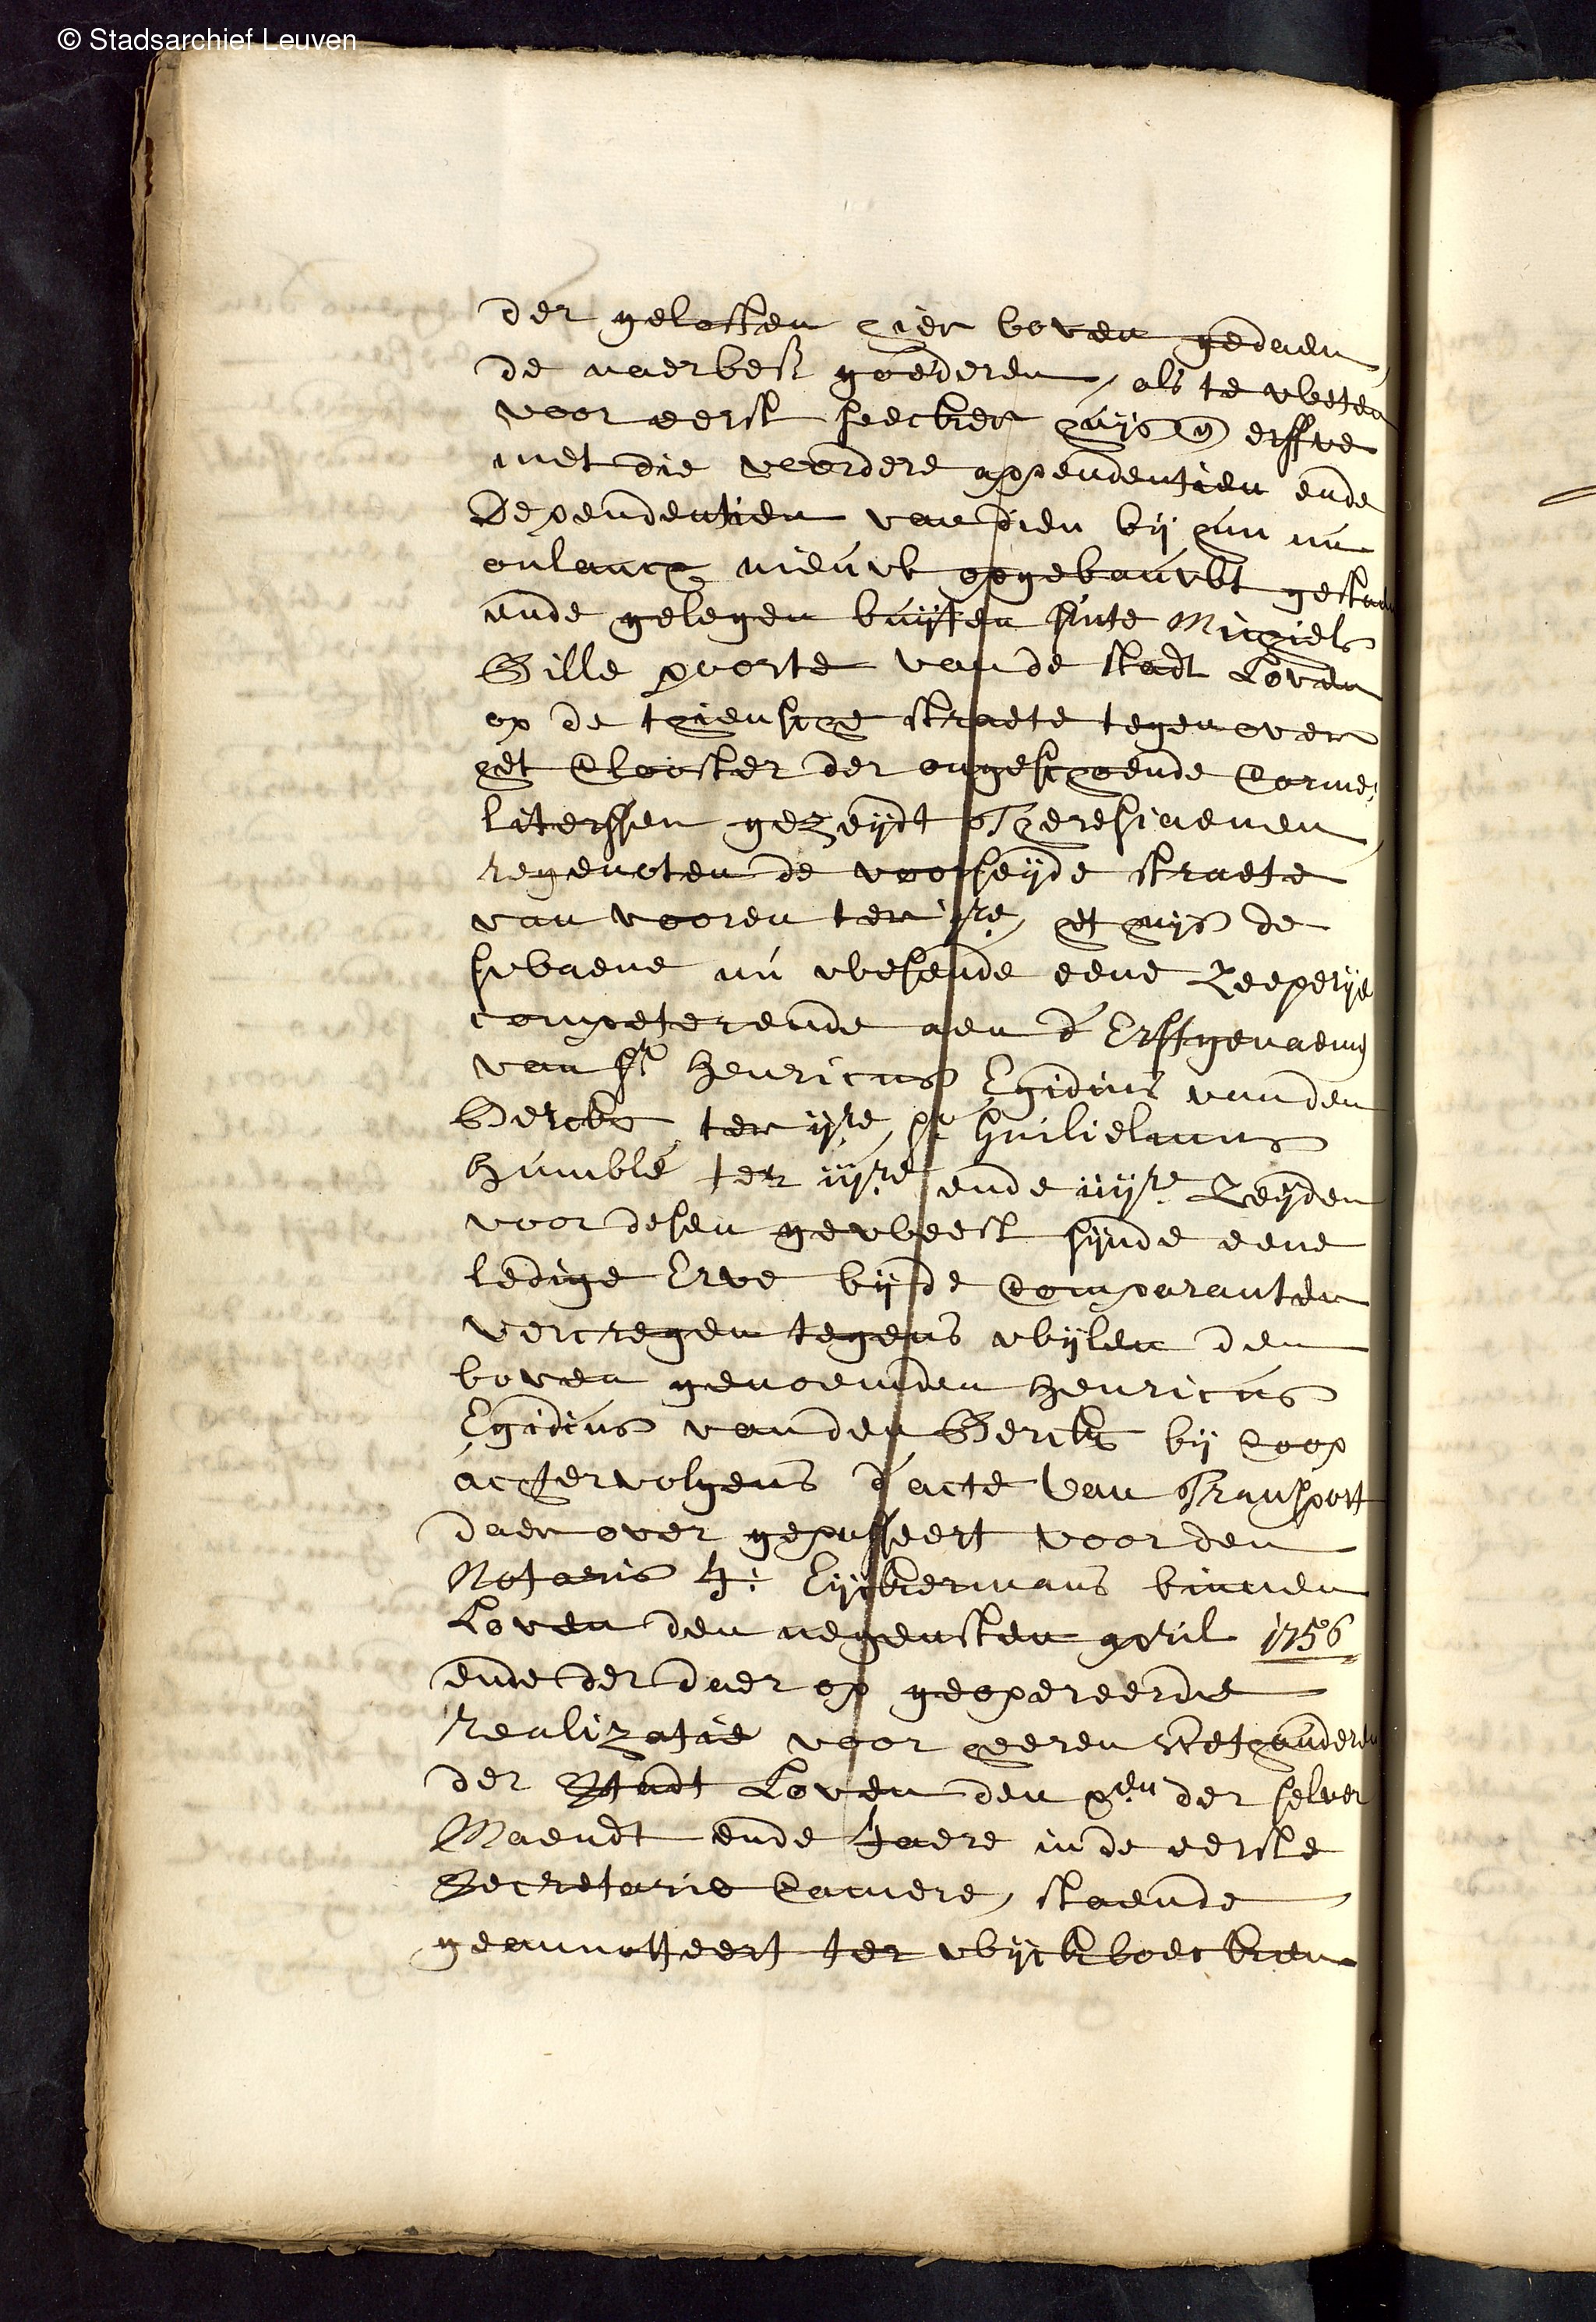 © Stadsarchief Leuven
der geloften hier boven gedaen,
de naerbes: goederen, als te weten
voor eerst seecker huijs en erffve
met die voordere appendentien ende
Dependentien van dien bij hun nu
onlancx nieuw opgebouwt gestaen
ende gelegen buijten sinte Michiels
Bille poorte van de stadt Loven
op de thiensche straete tegenover
het Clooster der ongeschoende Carme:
literssen gezeydt Theresiaenen,
regenoten de voorseyde straete
van vooren ter i.re, et huijs de
swaene nu wesende eene Zeeperije
competerende aen d'Erffgenaemen
van sr Henricus Egidius vanden
Bercke ter ij.re, sr Guilielmus
Humblé ter iij.re ende iiij.re Zeyden
voor desen geweest sijnde eene
ledige Erve bij de Comparanten
vercregen tegens wijlen den
boven genoemden Henricus
Egidius vanden Berck bij Coop
achtervolgens d'acte van Transport
daer over gepasseert voor den
Notaris J: Eyckermans binnen
Loven den negensten april 1756
ende der daer op geopereerde
realizatie voor heeren Wethouderen
der Stadt Loven den der selver
Maendt ende Jaere in de eerste
Secretarie Camere, staende
geannotteert ter wijckboecken